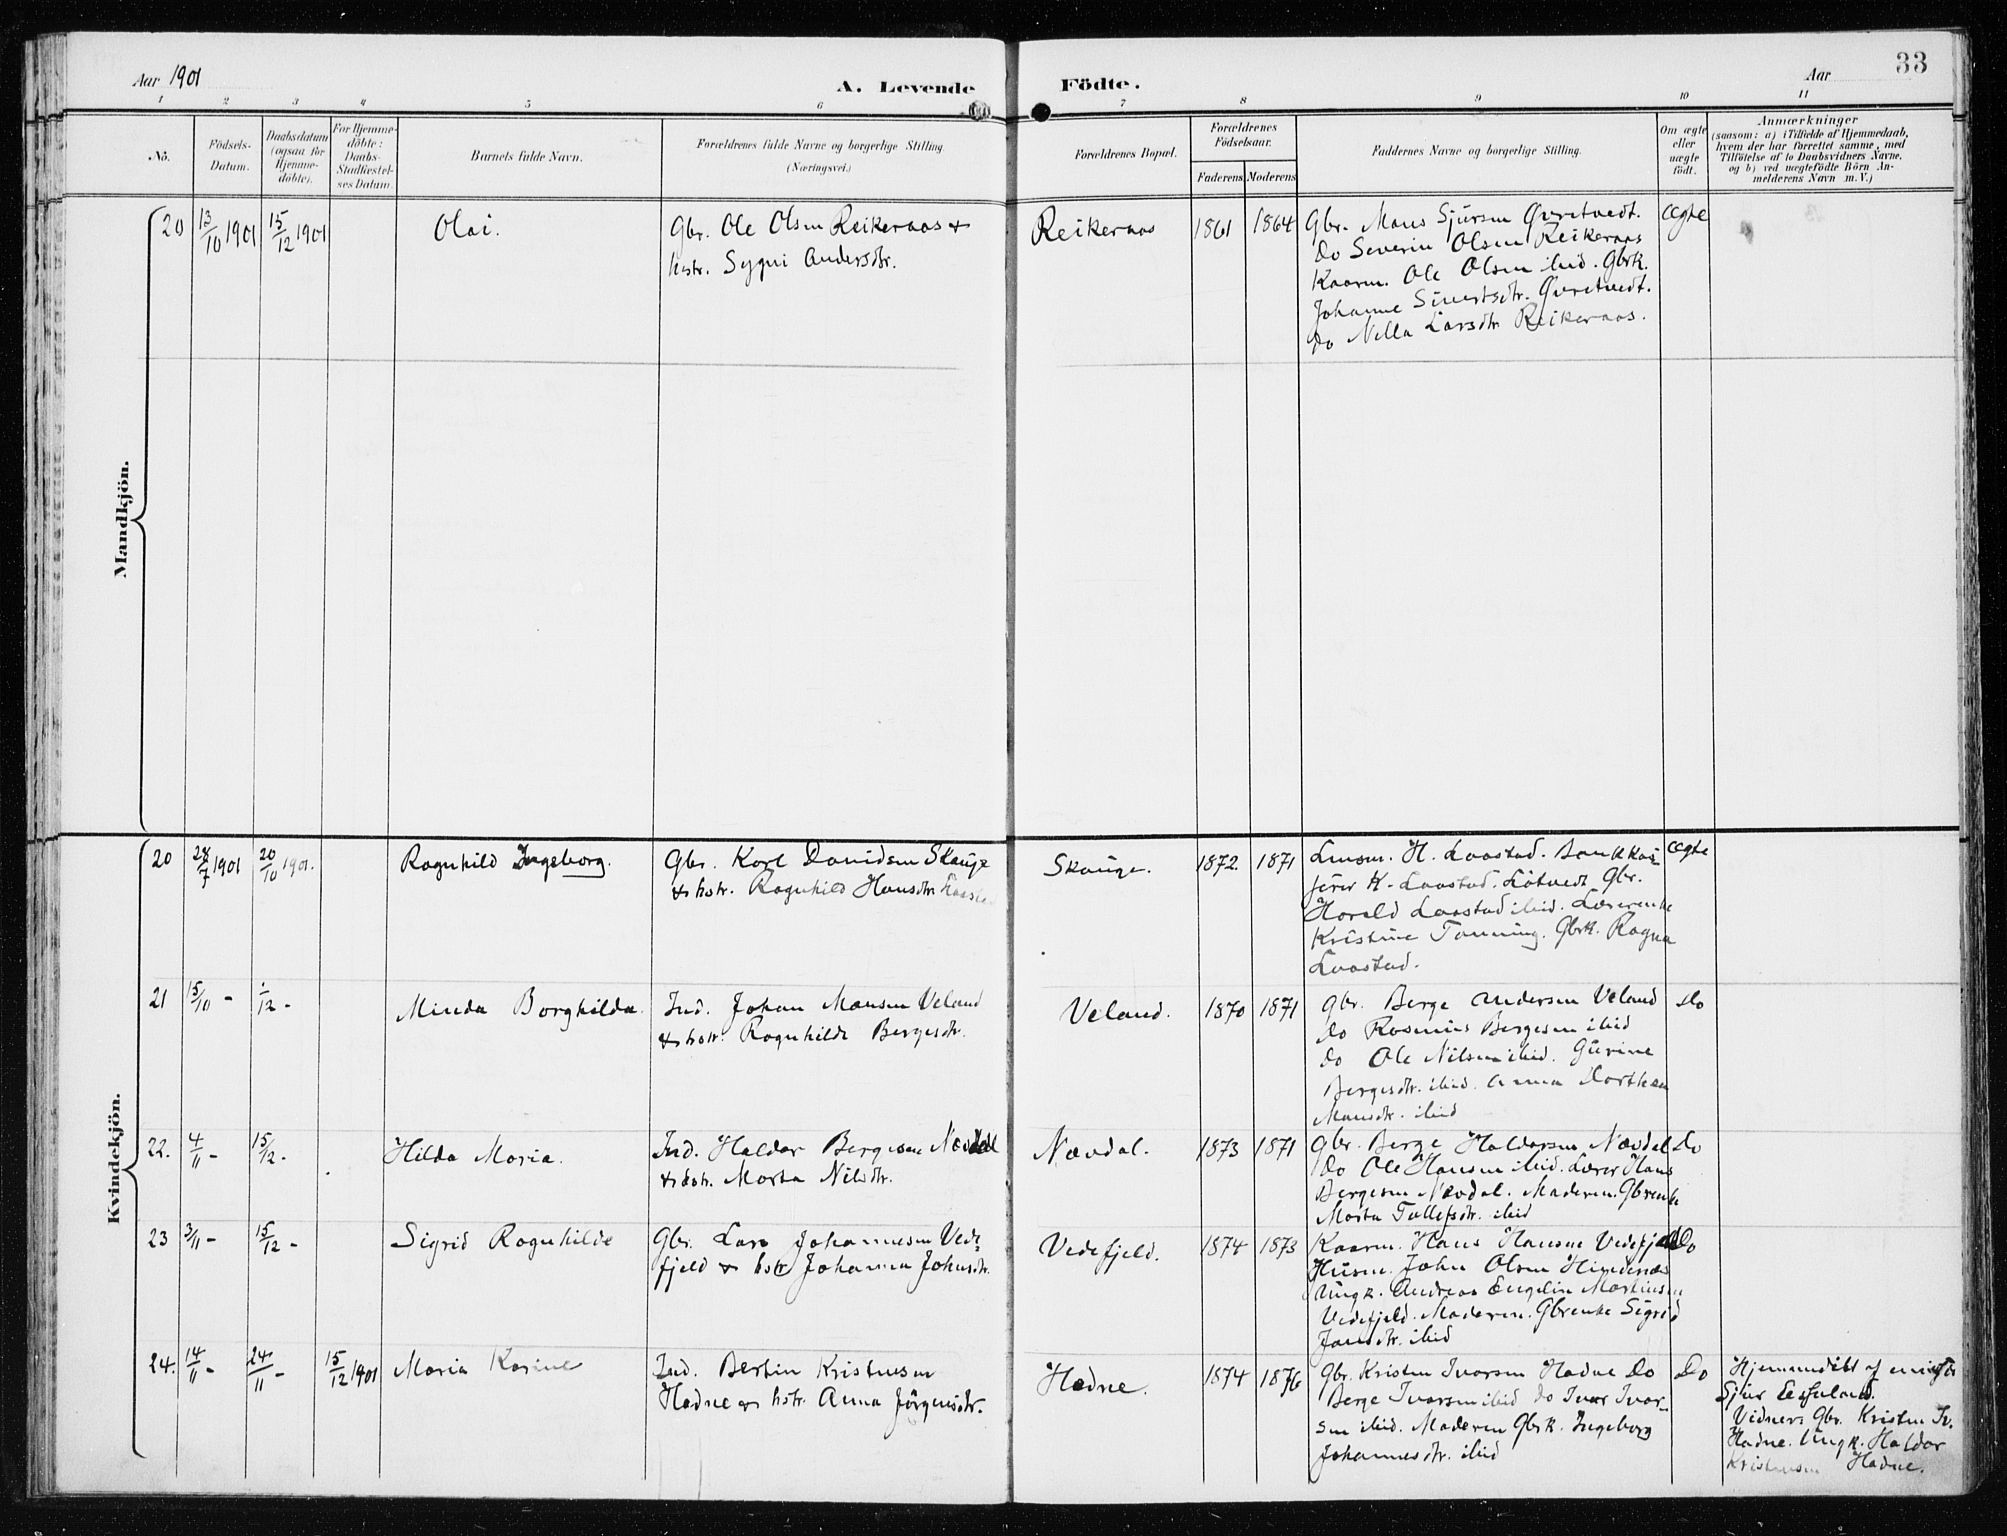 Aar 1901
A. Levende
Födte.
Aar
33
1 2 3 4 5 6 7 8 9 10 11
No.
Födsels-
Datum.
Daabsdatum
(ogsaa for
Hjemme-
döbte).
For Hjemme-
döbte:
Daabs-
Stadfæstel-
ses Datum.
Barnets fulde Navn.
Forældrenes fulde Navne og borgerlige Stilling
(Næringsvei.)
Forældrenes Bopæl.
Forældrenes
Födselsaar.
Faderens Moderens
Faddernes Navne og borgerlige Stilling.
Om ægte
eller
uægte
födt.
Anmærkninger
(saasom: a) i Tilfælde af Hjemmedaab,
hvem der har forrettet samme, med
Tilföielse af to Daabsvidners Navne,
og b) ved uægtefödte Börn An-
melderens Navn m. V.)
Mandkjön.
20
13/10 1901
15/12 1901
Olai.
Gbr. Ole Olsen Reikeraas &
hstr. Sygni Andersdtr.
Reikeraas
1861
1864
Gbr. Mans Sjursen Øvretvedt.
Do Severin Olsen Reikeraas
Kaarm. Ole Olsen ibid. Gbrk.
Johanne Sivertsdtr. Øvretvedt.
Do Nilla Larsdtr Reikeraas.
ægte
Kvindekjön.
20
28/7 1901
20/10 1901.
Ragnhild Ingeborg.
Gbr. Karl Davidsen Skauge
& hstr. Ragnhild Hansdtr. Laastad
Skauge.
1872.
1871
Lensm. H. Laastad. Bankkas-
ferer K. Laastad. Løtvedt Gbr.
Harald Laastad ibid. Lærerenke
Kristine Tonning. Gbrk. Ragna
Laastad.
ægte
21
15/10 -
1/12 -
Minda Borghilda
Ind. Johan Monsen Veland
& hstr. Ragnhilde Bergesdtr.
Veland.
1870
1871
Gbr. Berge Andersen Veland
Do Rasmus Bergesen ibid
Do Ole Nilsen ibid. Gurine
Bergesdtr. ibid. Anna Dorthea
Monsdtr. ibid
Do
22.
4/11 -
15/12 -
Hilda Maria.
Ind. Haldor Bergesen Nævdal
& hstr. Marta Nilsdtr.
Nævdal.
1873
1871
Gbr. Berge Haldorsen Nævdal
Do Ole Hansen ibid. Lærer Hans
Bergesen Nævdal. Moderen. Gbrenke
Marta Tollefsdtr. ibid
Do
23
3/11 -
15/12 -
Sigrid Ragnhilde
Gbr. Lars Johannesen Vede-
fjeld & hstr Johanna Johnsdtr.
Vedefjeld.
1874
1873
Kaarm. Hans Hansen Vedefjeld
Husm. John Olsen Hindenæs
Ungk. Andreas Engelin Martinsen
Vedefjeld. Moderen. Gbrenke Sigrid
Jonsdtr. ibid
Do
24.
14/11 -
24/11 -
15/12 1901
Maria Karine
Ind. Bertin Kristensen
Hodne & hstr. Anna Jørgensdtr.
Hodne.
1874
1876
Gbr. Kristen Ivarsen Hodne Do
Berge Ivarsen ibid Do Ivar Ivar-
sen ibid. Moderen Gbrk. Ingeborg
Johannesdtr. ibid
Do
Hjemmedøbt af
Sjur
Vidner: Gbr. Kristen Iv.
Hodne. Ungk. Haldor
Kristensen Hodne.